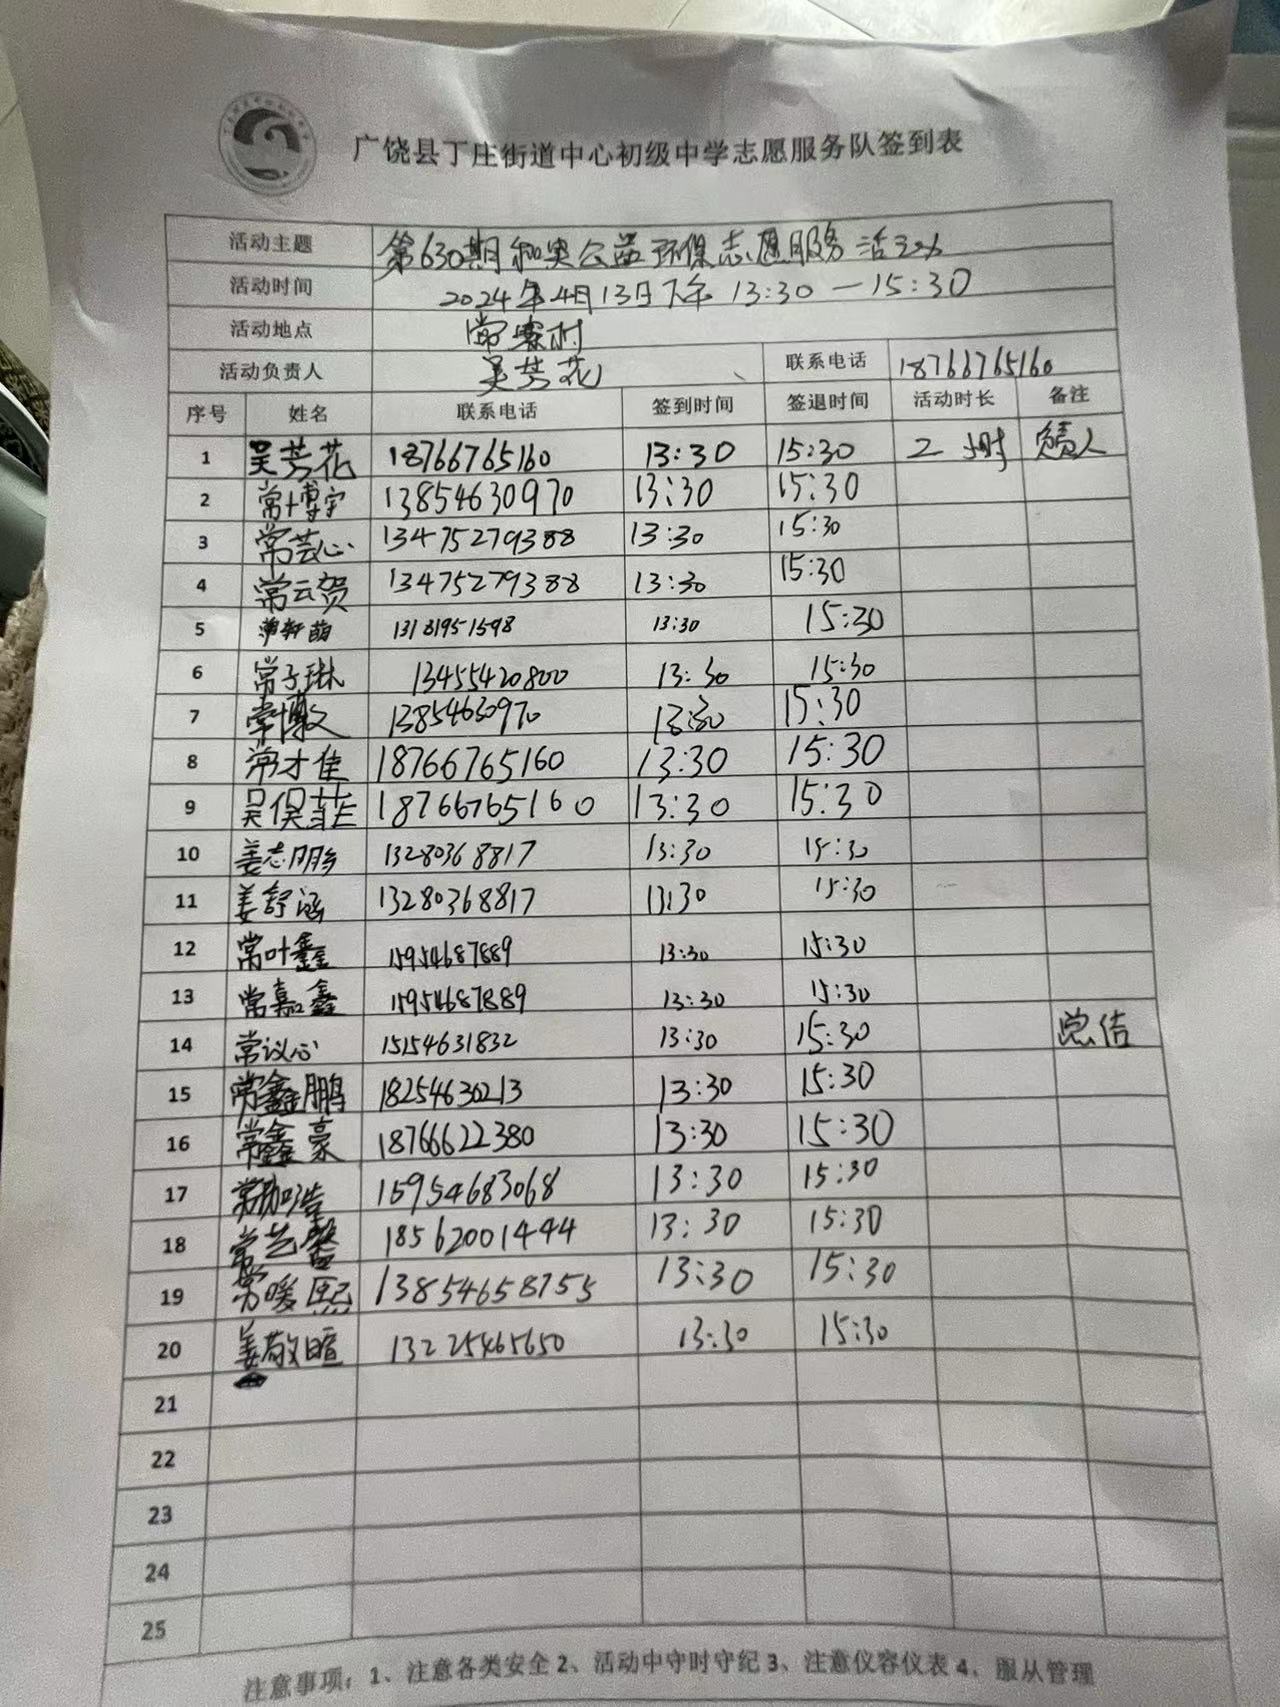 广饶县丁庄街道中心初级中学志愿服务队签到表
活动主题 第630期和奥公益环保志愿服务活动
活动时间 2024年4月13日下午 13:30—15:30
活动地点 常寨村
活动负责人 吴芳花 联系电话 18766765160
序号 姓名 联系电话 签到时间 签退时间 活动时长 备注
1 吴芳花 18766765160 13:30 15:30 2小时 负责人
2 常博宇 13854630970 13:30 15:30
3 常芸心 13475279388 13:30 15:30
4 常云贺 13475279388 13:30 15:30
5 13181951598 13:30 15:30
6 常子琳 13455420800 13:30 15:30
7 常博文 13854630970 13:30 15:30
8 常才佳 18766765160 13:30 15:30
9 吴俣菲 18766765160 13:30 15:30
10 姜志鹏 13280368817 13:30 15:30
11 姜舒涵 13280368817 13:30 15:30
12 常叶鑫 15954687889 13:30 15:30
13 常嘉鑫 15954687889 13:30 15:30
14 常议心 15154631832 13:30 15:30 总结
15 常鑫鹏 18254630213 13:30 15:30
16 常鑫豪 18766622380 13:30 15:30
17 常珈浩 15954683068 13:30 15:30
18 常艺馨 18562001444 13:30 15:30
19 常暖熙 13854658755 13:30 15:30
20 姜敬暄 13225465650 13:30 15:30
21
22
23
24
25
注意事项：1、注意各类安全 2、活动中守时守纪 3、注意仪容仪表 4、服从管理